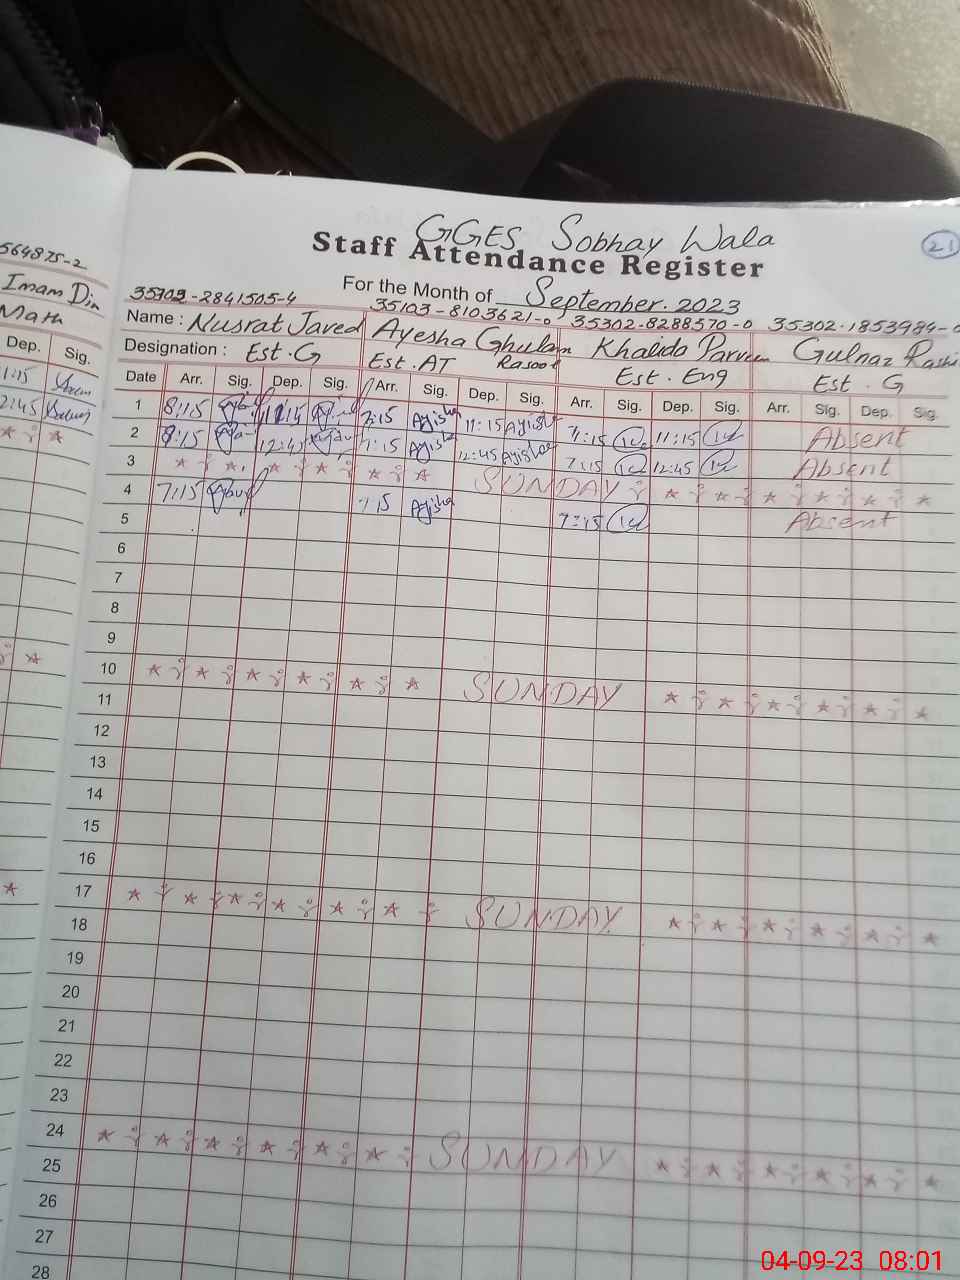 564875-2
Imam Din
Math
Dep. Sig.
1:15
2:45
GGES Sobhay Wala
21
Staff Attendance Register
For the Month of September. 2023
35103-2841505-4 35103-8103621-0 35302-8288570-0 35302-1853984-0
Name : Nusrat Javed Ayesha Ghulam Rasool Khalida Parveen Gulnaz Rashi
Designation : Est.G Est.AT Est.Eng Est.G
Date Arr. Sig. Dep. Sig. Arr. Sig. Dep. Sig. Arr. Sig. Dep. Sig. Arr. Sig. Dep. Sig.
1 8:15 11:15 7:15 Ayisha 11:15 Ayisha 7:15 11:15 Absent
2 8:15 12:45 7:15 Ayisha 12:45 Ayisha 7:15 12:45 Absent
3 SUNDAY
4 7:15 7:15 Ayisha 7:15 Absent
5
6
7
8
9
10 SUNDAY
11
12
13
14
15
16
17 SUNDAY
18
19
20
21
22
23
24 SUNDAY
25
26
27
28
04-09-23 08:01